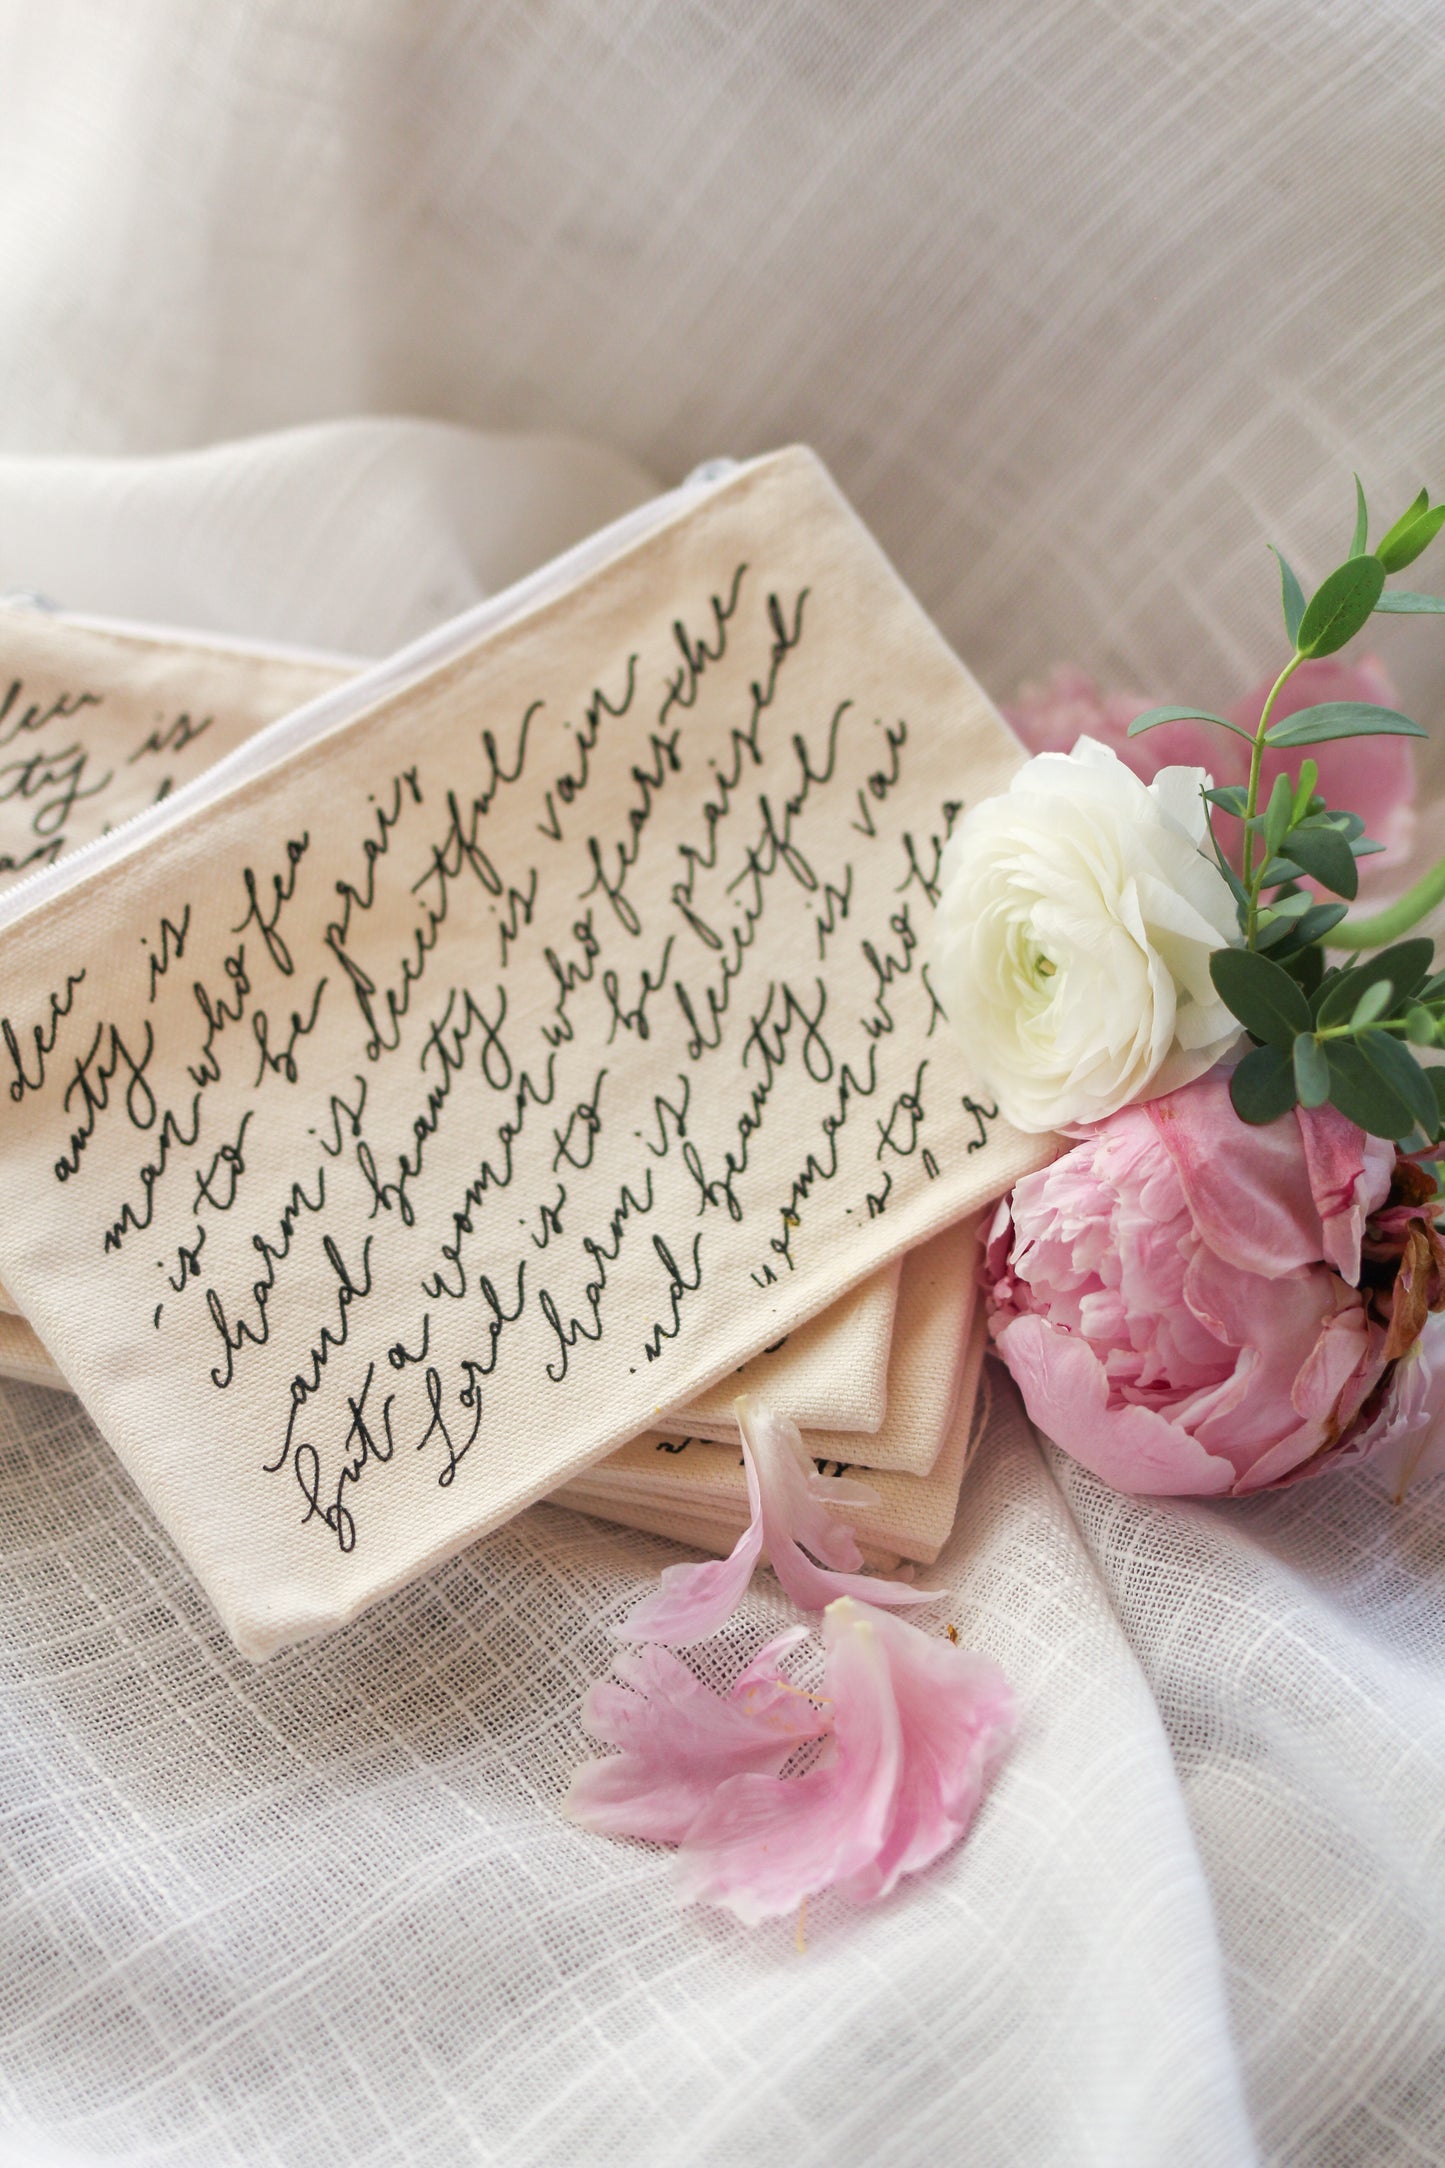 dec
auty is
man who fea
is to be prais
charm is deceitful
and beauty is vain
but a woman who fears the
Lord is to be praised
charm is deceitful
and beauty is vai
woman who fea
is to
ty is